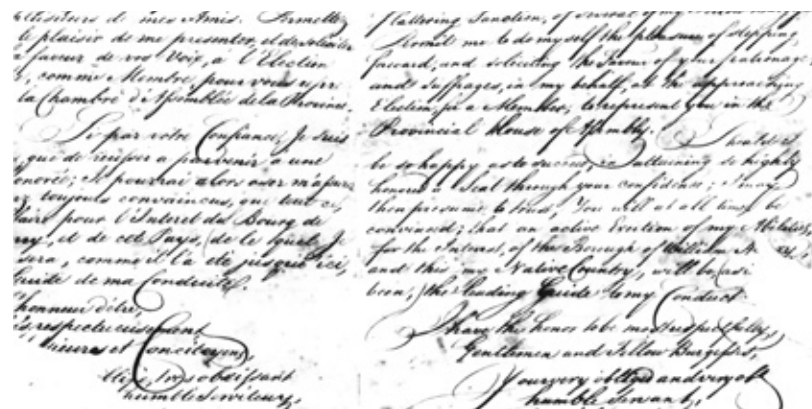 Electeurs de mes Amis. Permettez
le plaisir de me presenter, et de soliciter
la faveur de vos Voix, à l'Election
comme Membre pour vous
la Chambre d'Assemblée de la Province.
Si par votre Confiance, Je suis
que de reussir a parvenir a une
honorée; Je pourrai alors oser m'assurer
toujours convaincus, que
pour l'Interet du Bourg de
et de cet Pays, de le quel Je
sera, comme il l'a été jusqu'ici,
Guide de ma Conduite.
honneur d'être,
respectueusement
et Concitoyens,
très obeissant
humble Serviteur,
flattering Sanction, of several of my
Permit me to do myself the pleasure of stepping
forward, and soliciting the Favour of your patronage
and Suffrages, in my behalf, at the approaching
Election, for a Member, to represent you in the
Provincial House of Assembly.
Should I
be so happy as to succeed, in attaining so highly
honored a Seat through your confidence; I may
then presume to trust, You will at all times be
convinced; that an active Exertion of my Abilities,
for the Interest, of the Borough of William H
and this, my Native Country, will be, as i
been, the leading Guide to my Conduct.
I have the honor to be most respectfully,
Gentlemen and Fellow Burgesses,
Your very obliged and very ob
humble Servant,